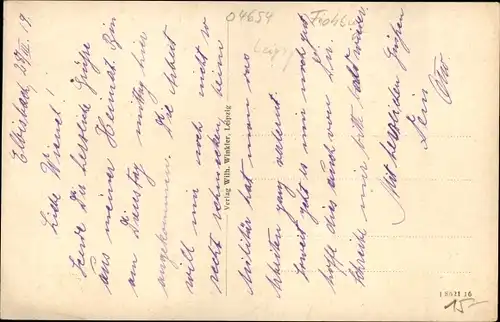 04654
Frohbu
Leipz
Elbisbach, 29/III. 19.
Liebe Wiesel!
Sende Dir herzliche Grüße
aus meiner Heimat. Bin
am Dienstag mittag hier
angekommen. Die Arbeit
will mir noch nicht so
recht schmecken, beim
Militär hat man das
Arbeiten ganz verlernt.
Soweit geht es mir noch gut,
hoffe dies auch von Dir.
Schreibe mir bitte bald wieder.
Mit herzlichen Grüßen
Dein
Otto.
Verlag Wilh. Winkler, Leipzig
15